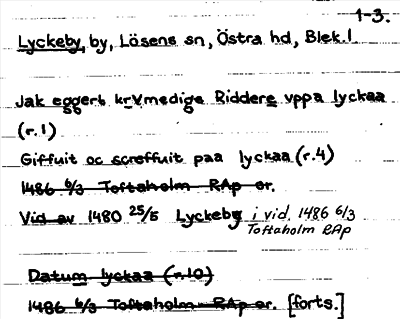 1-3.
Lyckeby, by, Lösens sn, Östra hd, Blek. l.
Jak eggert krvmedige Riddere vppa lyckaa
(r.1)
Giffuit oc screffuit paa lyckaa (r.4)
1486 6/3 Toftaholm RAp or.
Vid av 1480 25/5 Lyckeby i vid. 1486 6/3
Toftaholm RAp
Datum lyckaa (r.10)
1486 6/3 Toftaholm RAp or. [forts.]